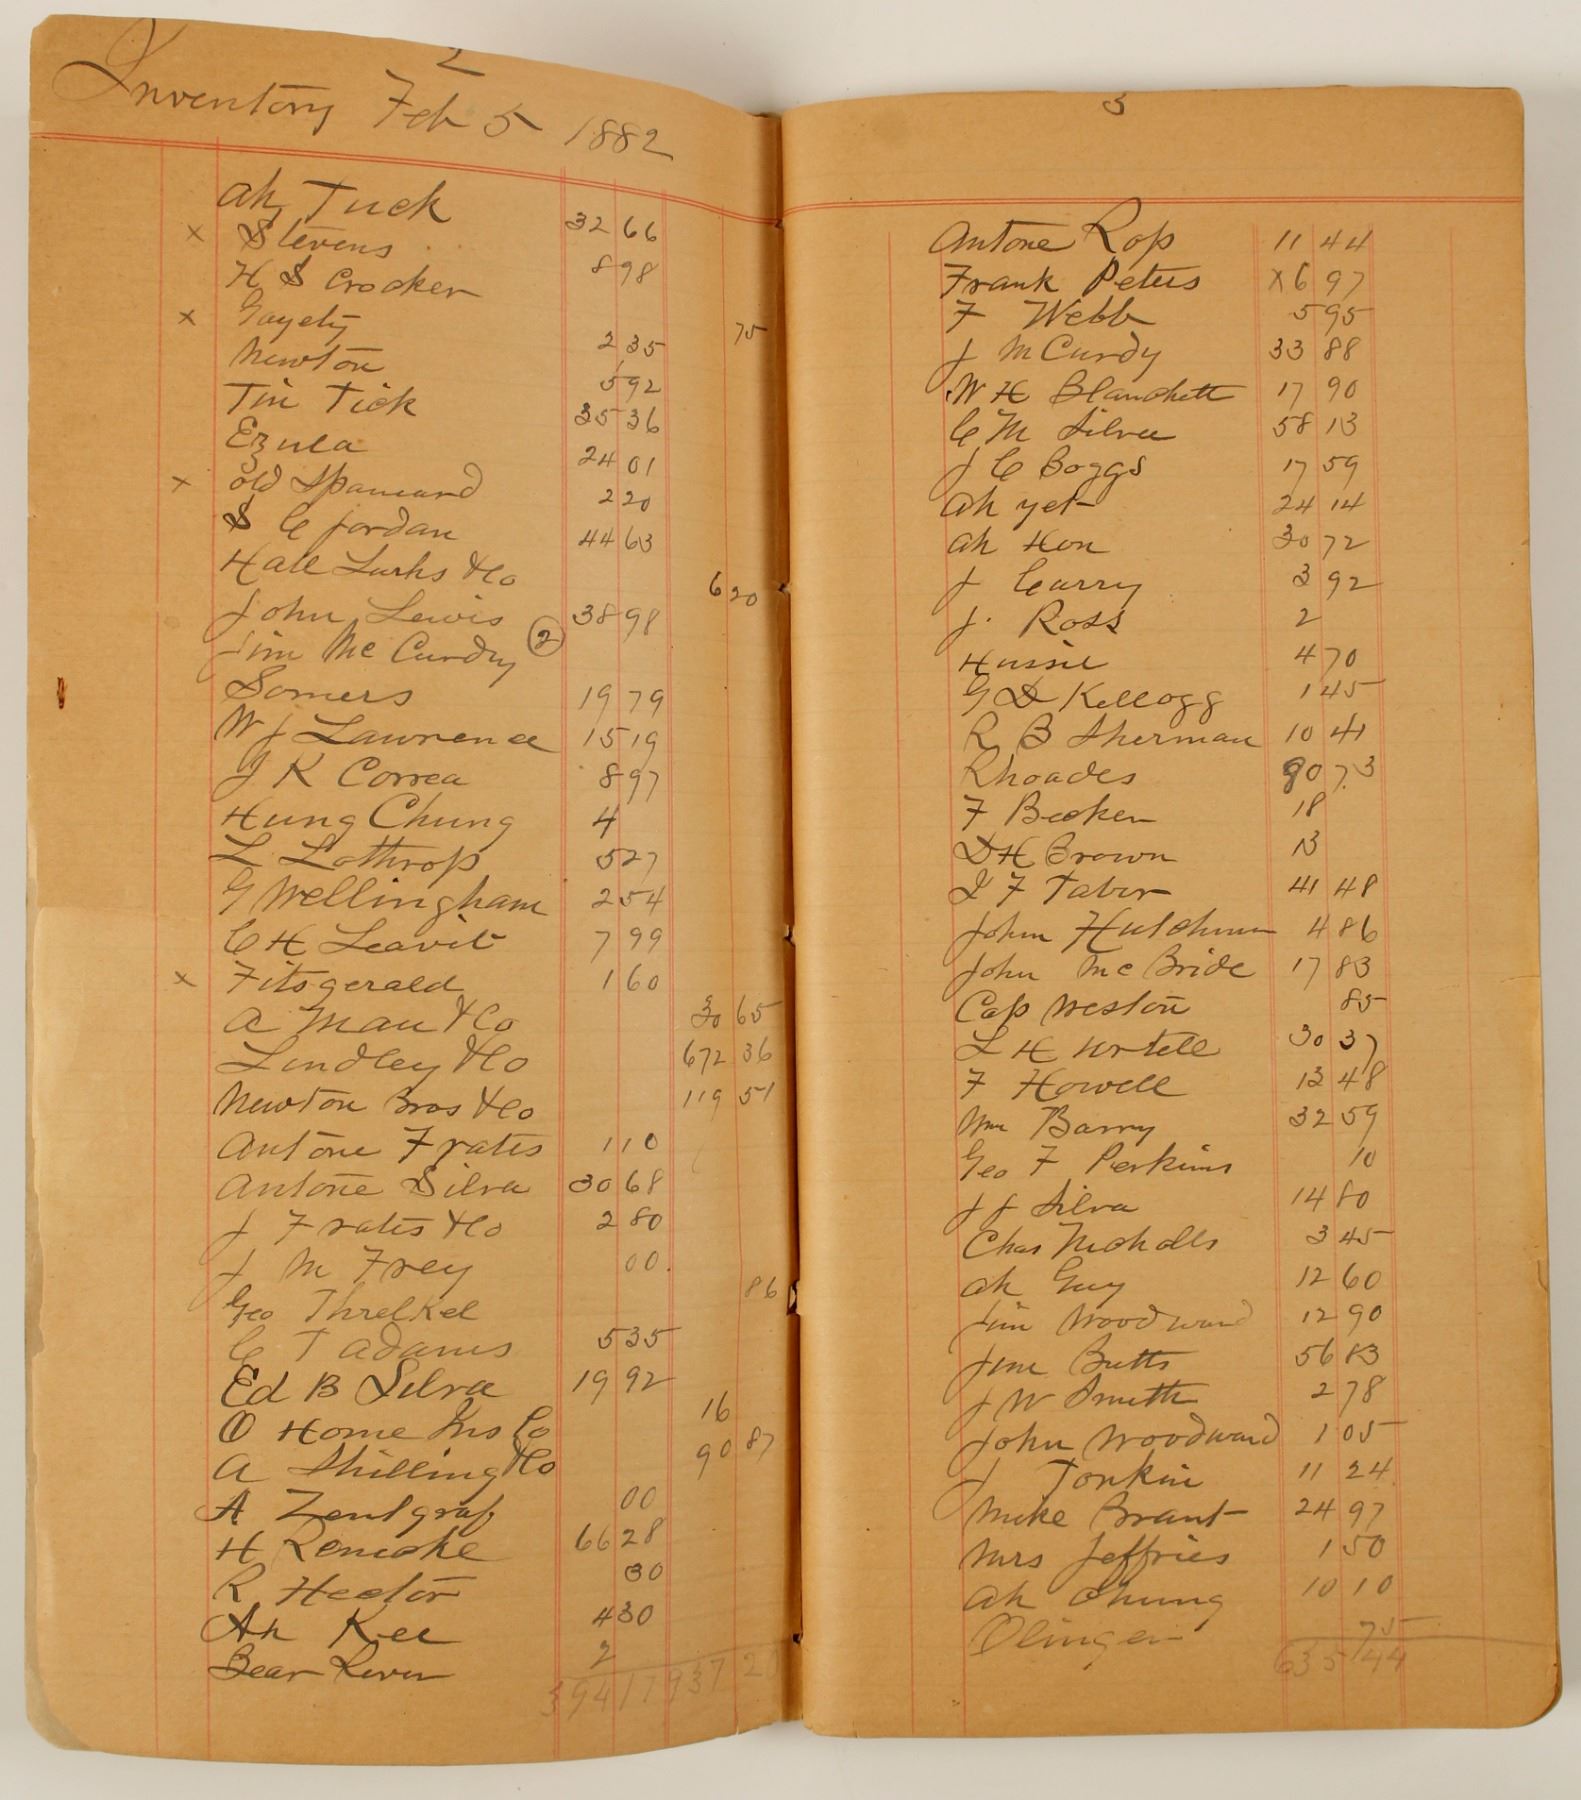 2
Inventory Feb 5 1882
Ah Tuck 32 66
x Stevens 8 98
H S Crocker 75
x Gayety 2 35
Newton 5 92
Tin Tick 35 36
Ezula 24 01
x old Spaniard 2 20
S C Jordan 44 63
Hall Luhs & Co 6 20
John Lewis 38 98
Jim McCurdy 2
Somers 19 79
W J Lawrence 15 19
J K Correa 8 97
Hung Chung 4
L Lothrop 5 27
G Wellingham 2 54
C H Leavit 7 99
x Fitsgerald 1 60
A Mau & Co 30 65
Lindley & Co 672 36
Newton Bros & Co 119 51
Antone Frates 1 10
Antone Silva 30 68
J Frates & Co 2 80
J M Frey 00
Geo Threlkel 86
C T Adams 5 35
Ed B Silva 19 92
O Home Ins Co 16
A Shilling & Co 90 87
A Zentgraf 00
H Renicke 66 28
R Hector 30
Ah Kee 4 30
Bear River 2
394 17 937 20
3
Antone Rop 11 44
Frank Peters x6 97
F Webb 5 95
J McCurdy 33 88
W H Blanchett 17 90
C M Silva 58 13
J C Boggs 17 59
Ah yet 24 14
Ah Hon 30 72
J Curry 3 92
J. Ross 2
Hussie 4 70
G D Kellogg 1 45
R B Sherman 10 41
Rhoades 90 73
F Becker 18
D H Brown 13
I F Tabor 41 48
John Hutchinson 4 86
John McBride 17 83
Cap Weston 85
L H 30 37
F Howell 13 48
Wm Barry 32 59
Geo F Perkins 10
J J Silva 14 80
Chas Nicholls 3 45
Ah Guy 12 60
Jim Woodward 12 90
Jim Butts 56 83
J W Smith 2 78
John Woodward 1 05
J Tonkin 11 24
Mike Brant 24 97
Mrs Jeffries 1 50
Ah Chung 10 10
Olinger 75
635 44